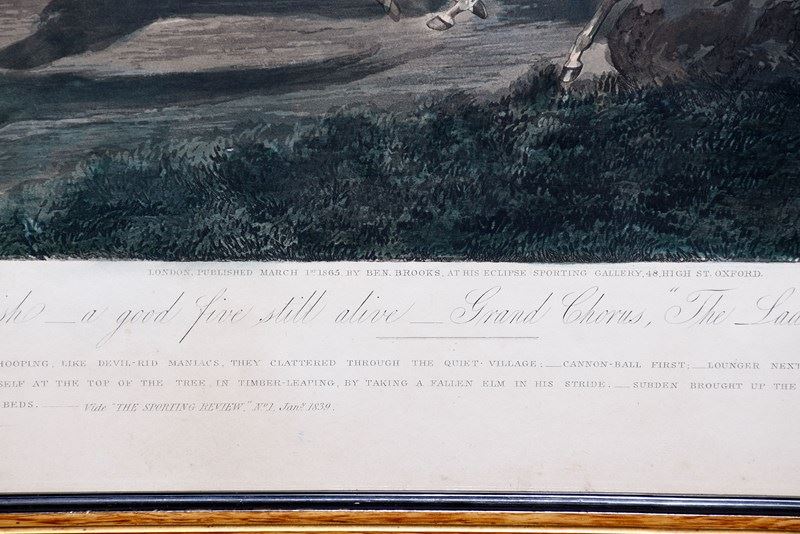 LONDON, PUBLISHED MARCH 1ST 1865, BY BEN. BROOKS, AT HIS ECLIPSE SPORTING GALLERY, 48, HIGH ST. OXFORD.
sh — a good five still alive — Grand Chorus, "The Lad
HOOPING, LIKE DEVIL-RID MANIACS, THEY CLATTERED THROUGH THE QUIET VILLAGE; — CANNON-BALL FIRST; — LOUNGER NEXT
SELF AT THE TOP OF THE TREE, IN TIMBER-LEAPING, BY TAKING A FALLEN ELM IN HIS STRIDE. — SUBDEN BROUGHT UP THE
BEDS. — Vide "THE SPORTING REVIEW," No. 1, Jany. 1839.